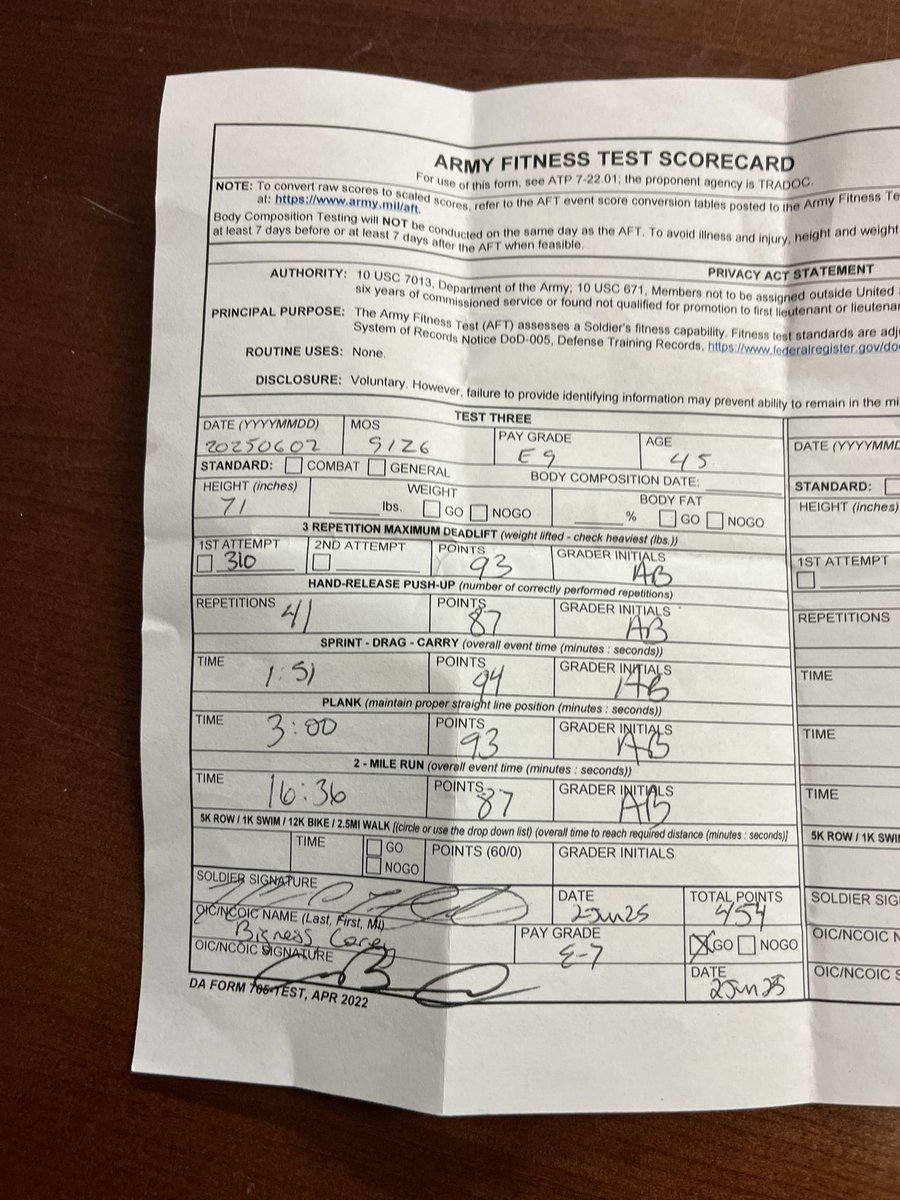 ARMY FITNESS TEST SCORECARD
For use of this form, see ATP 7-22.01; the proponent agency is TRADOC.
NOTE: To convert raw scores to scaled scores, refer to the AFT event score conversion tables posted to the Army Fitness Te
at: https://www.army.mil/aft.
Body Composition Testing will NOT be conducted on the same day as the AFT. To avoid illness and injury, height and weight
at least 7 days before or at least 7 days after the AFT when feasible.
PRIVACY ACT STATEMENT
AUTHORITY: 10 USC 7013, Department of the Army; 10 USC 671, Members not to be assigned outside United
six years of commissioned service or found not qualified for promotion to first lieutenant or lieutenan
PRINCIPAL PURPOSE: The Army Fitness Test (AFT) assesses a Soldier's fitness capability. Fitness test standards are adj
System of Records Notice DoD-005, Defense Training Records, https://www.federalregister.gov/do
ROUTINE USES: None.
DISCLOSURE: Voluntary. However, failure to provide identifying information may prevent ability to remain in the mi
TEST THREE
DATE (YYYYMMDD) MOS PAY GRADE AGE DATE (YYYYMMD
20250602 91Z6 E9 45
STANDARD: COMBAT GENERAL BODY COMPOSITION DATE: STANDARD:
HEIGHT (inches) WEIGHT BODY FAT HEIGHT (inches)
71 lbs. GO NOGO % GO NOGO
3 REPETITION MAXIMUM DEADLIFT (weight lifted - check heaviest (lbs.))
1ST ATTEMPT 2ND ATTEMPT POINTS GRADER INITIALS 1ST ATTEMPT
310 93 AB
HAND-RELEASE PUSH-UP (number of correctly performed repetitions)
REPETITIONS 41 POINTS 87 GRADER INITIALS AB REPETITIONS
SPRINT - DRAG - CARRY (overall event time (minutes : seconds))
TIME 1:51 POINTS 94 GRADER INITIALS AB TIME
PLANK (maintain proper straight line position (minutes : seconds))
TIME 3:00 POINTS 93 GRADER INITIALS AB TIME
2 - MILE RUN (overall event time (minutes : seconds))
TIME 16:36 POINTS 87 GRADER INITIALS AB TIME
5K ROW / 1K SWIM / 12K BIKE / 2.5MI WALK [(circle or use the drop down list) (overall time to reach required distance (minutes : seconds)] 5K ROW / 1K SWI
TIME GO NOGO POINTS (60/0) GRADER INITIALS
SOLDIER SIGNATURE DATE 2Jun25 TOTAL POINTS 454 SOLDIER SIG
OIC/NCOIC NAME (Last, First, MI) PAY GRADE GO NOGO OIC/NCOIC N
Bigness, Corey E-7 X
OIC/NCOIC SIGNATURE DATE 2Jun25 OIC/NCOIC S
DA FORM 705-TEST, APR 2022